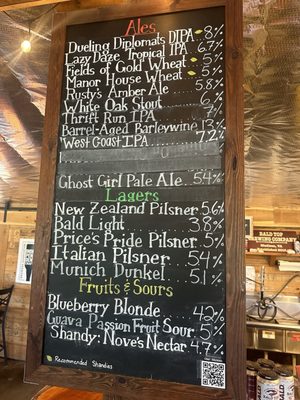 Ales
Dueling Diplomats DIPA 8%
Lazy Daze Tropical IPA 6.7%
Fields of Gold Wheat 5%
Manor House Wheat 5%
Rusty's Amber Ale 5.8%
White Oak Stout 6%
Thrift Run IPA 7%
Barrel-Aged Barleywine 13%
West Coast IPA 7.2%
Ghost Girl Pale Ale 5.4%
Lagers
New Zealand Pilsner 5.6%
Bald Light 3.8%
Price's Pride Pilsner 5%
Italian Pilsner 5.4%
Munich Dunkel 5.1%
Fruits & Sours
Blueberry Blonde 4.2%
Guava Passion Fruit Sour 5%
Shandy: Nove's Nectar 4.7%
Recommended Shandies
BALD TOP
BREWING COMPANY